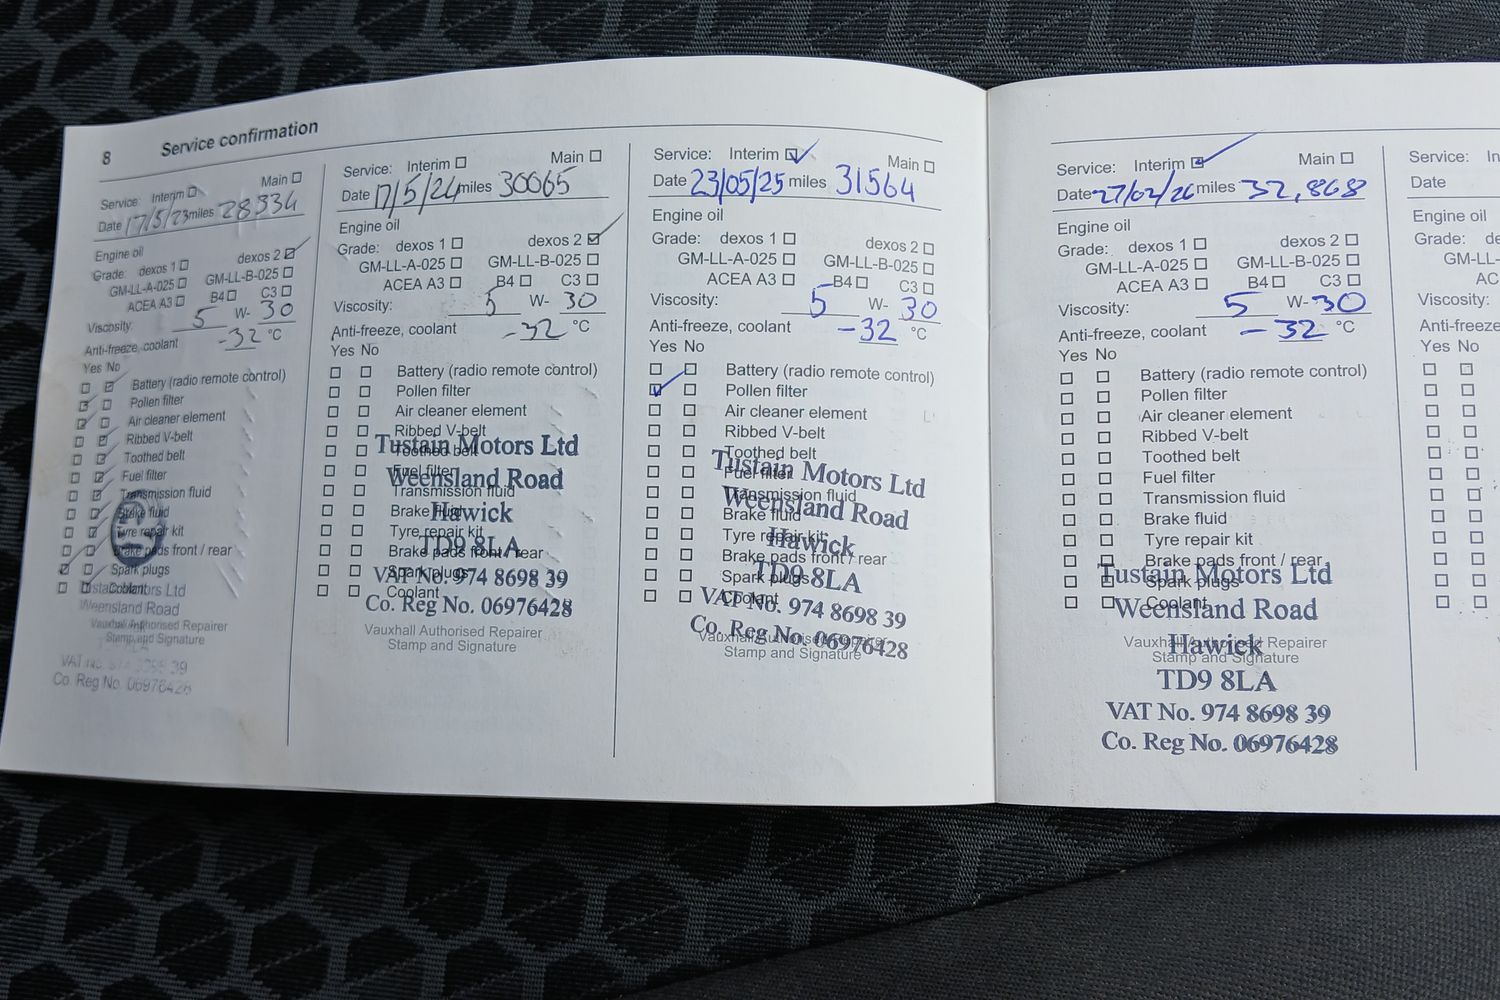 8 Service confirmation
Service: Interim Main
Date 17/5/23 miles 28334
Engine oil
Grade: dexos 1 dexos 2
GM-LL-A-025 GM-LL-B-025
ACEA A3 B4 C3
Viscosity: 5 W- 30
Anti-freeze, coolant -32 °C
Yes No
Battery (radio remote control)
Pollen filter
Air cleaner element
Ribbed V-belt
Toothed belt
Fuel filter
Transmission fluid
Brake fluid
Tyre repair kit
Brake pads front / rear
Spark plugs
Coolant
Weensland Road
Vauxhall Authorised Repairer
Stamp and Signature
Co. Reg No. 06976428
Service: Interim Main
Date 17/5/24 miles 30065
Engine oil
Grade: dexos 1 dexos 2
GM-LL-A-025 GM-LL-B-025
ACEA A3 B4 C3
Viscosity: 5 W- 30
Anti-freeze, coolant -32 °C
Yes No
Battery (radio remote control)
Pollen filter
Air cleaner element
Ribbed V-belt
Toothed belt
Fuel filter
Transmission fluid
Brake fluid
Tyre repair kit
Brake pads front / rear
Spark plugs
Coolant
Tustain Motors Ltd
Weensland Road
Hawick
TD9 8LA
VAT No. 974 8698 39
Co. Reg No. 06976428
Vauxhall Authorised Repairer
Stamp and Signature
Service: Interim Main
Date 23/05/25 miles 31564
Engine oil
Grade: dexos 1 dexos 2
GM-LL-A-025 GM-LL-B-025
ACEA A3 B4 C3
Viscosity: 5 W- 30
Anti-freeze, coolant -32 °C
Yes No
Battery (radio remote control)
Pollen filter
Air cleaner element
Ribbed V-belt
Toothed belt
Fuel filter
Transmission fluid
Brake fluid
Tyre repair kit
Brake pads front / rear
Spark plugs
Coolant
Tustain Motors Ltd
Weensland Road
Hawick
TD9 8LA
VAT No. 974 8698 39
Co. Reg No. 06976428
Vauxhall Authorised Repairer
Stamp and Signature
Service: Interim Main
Date 27/02/26 miles 32,868
Engine oil
Grade: dexos 1 dexos 2
GM-LL-A-025 GM-LL-B-025
ACEA A3 B4 C3
Viscosity: 5 W- 30
Anti-freeze, coolant -32 °C
Yes No
Battery (radio remote control)
Pollen filter
Air cleaner element
Ribbed V-belt
Toothed belt
Fuel filter
Transmission fluid
Brake fluid
Tyre repair kit
Brake pads front / rear
Spark plugs
Coolant
Tustain Motors Ltd
Weensland Road
Hawick
TD9 8LA
VAT No. 974 8698 39
Co. Reg No. 06976428
Vauxhall Authorised Repairer
Stamp and Signature
Service: In
Date
Engine oil
Grade: de
GM-LL-
AC
Viscosity:
Anti-freeze
Yes No